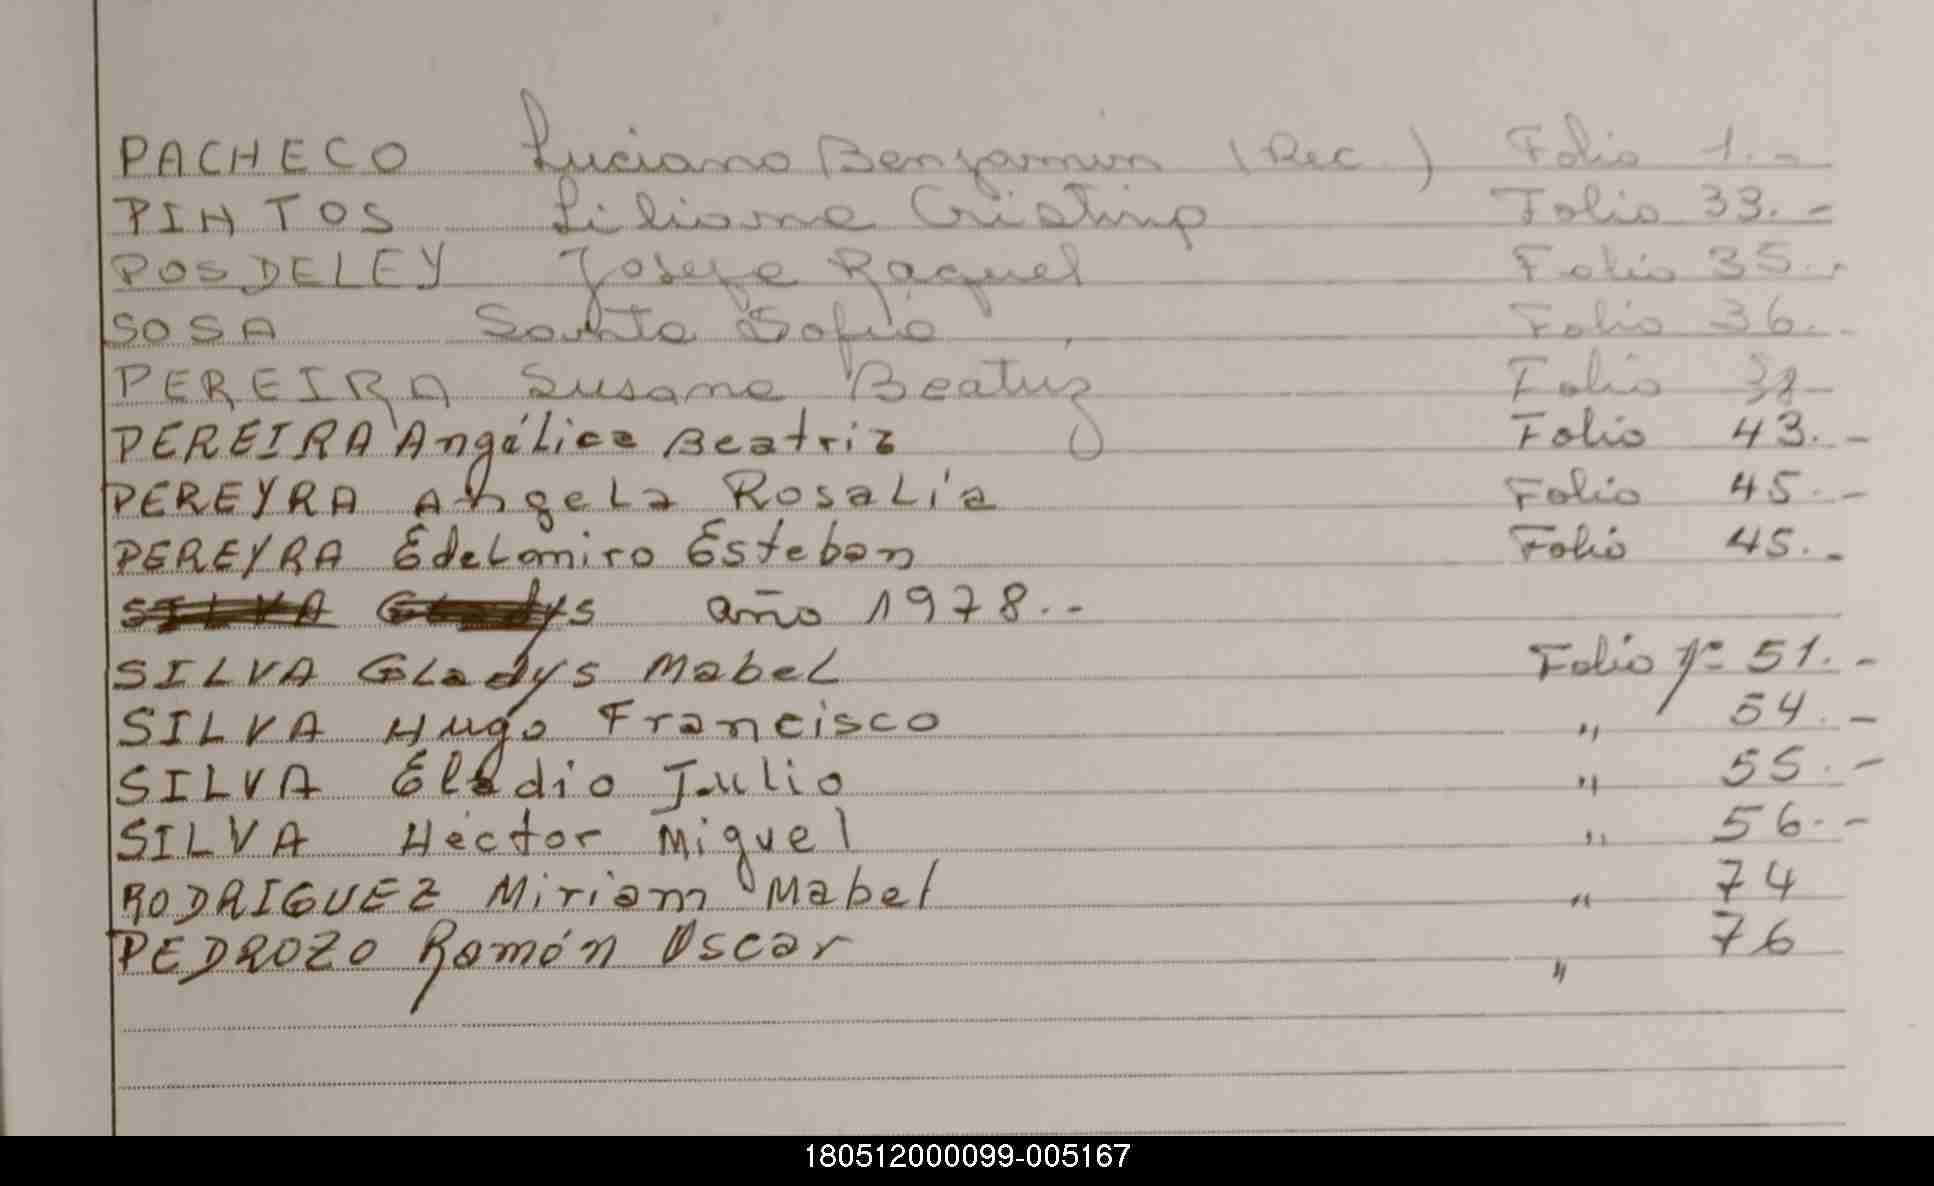 PACHECO Luciano Benjamin (Rec.) Folio 1.-
PINTOS Liliana Cristina Folio 33.-
POSDELEY Josefa Raquel Folio 35.-
SOSA Santa Sofia Folio 36.-
PEREIRA Susana Beatriz Folio 38-
PEREIRA Angélica Beatriz Folio 43.-
PEREYRA Angela Rosalía Folio 45.-
PEREYRA Edelmiro Esteban Folio 45.-
SILVA Gladys año 1978.--
SILVA Gladys Mabel Folio nº 51.-
SILVA Hugo Francisco " 54.-
SILVA Eladio Julio " 55.-
SILVA Héctor Miguel " 56.-
RODRIGUEZ Miriam Mabel " 74
PEDROZO Ramón Oscar " 76
180512000099-005167